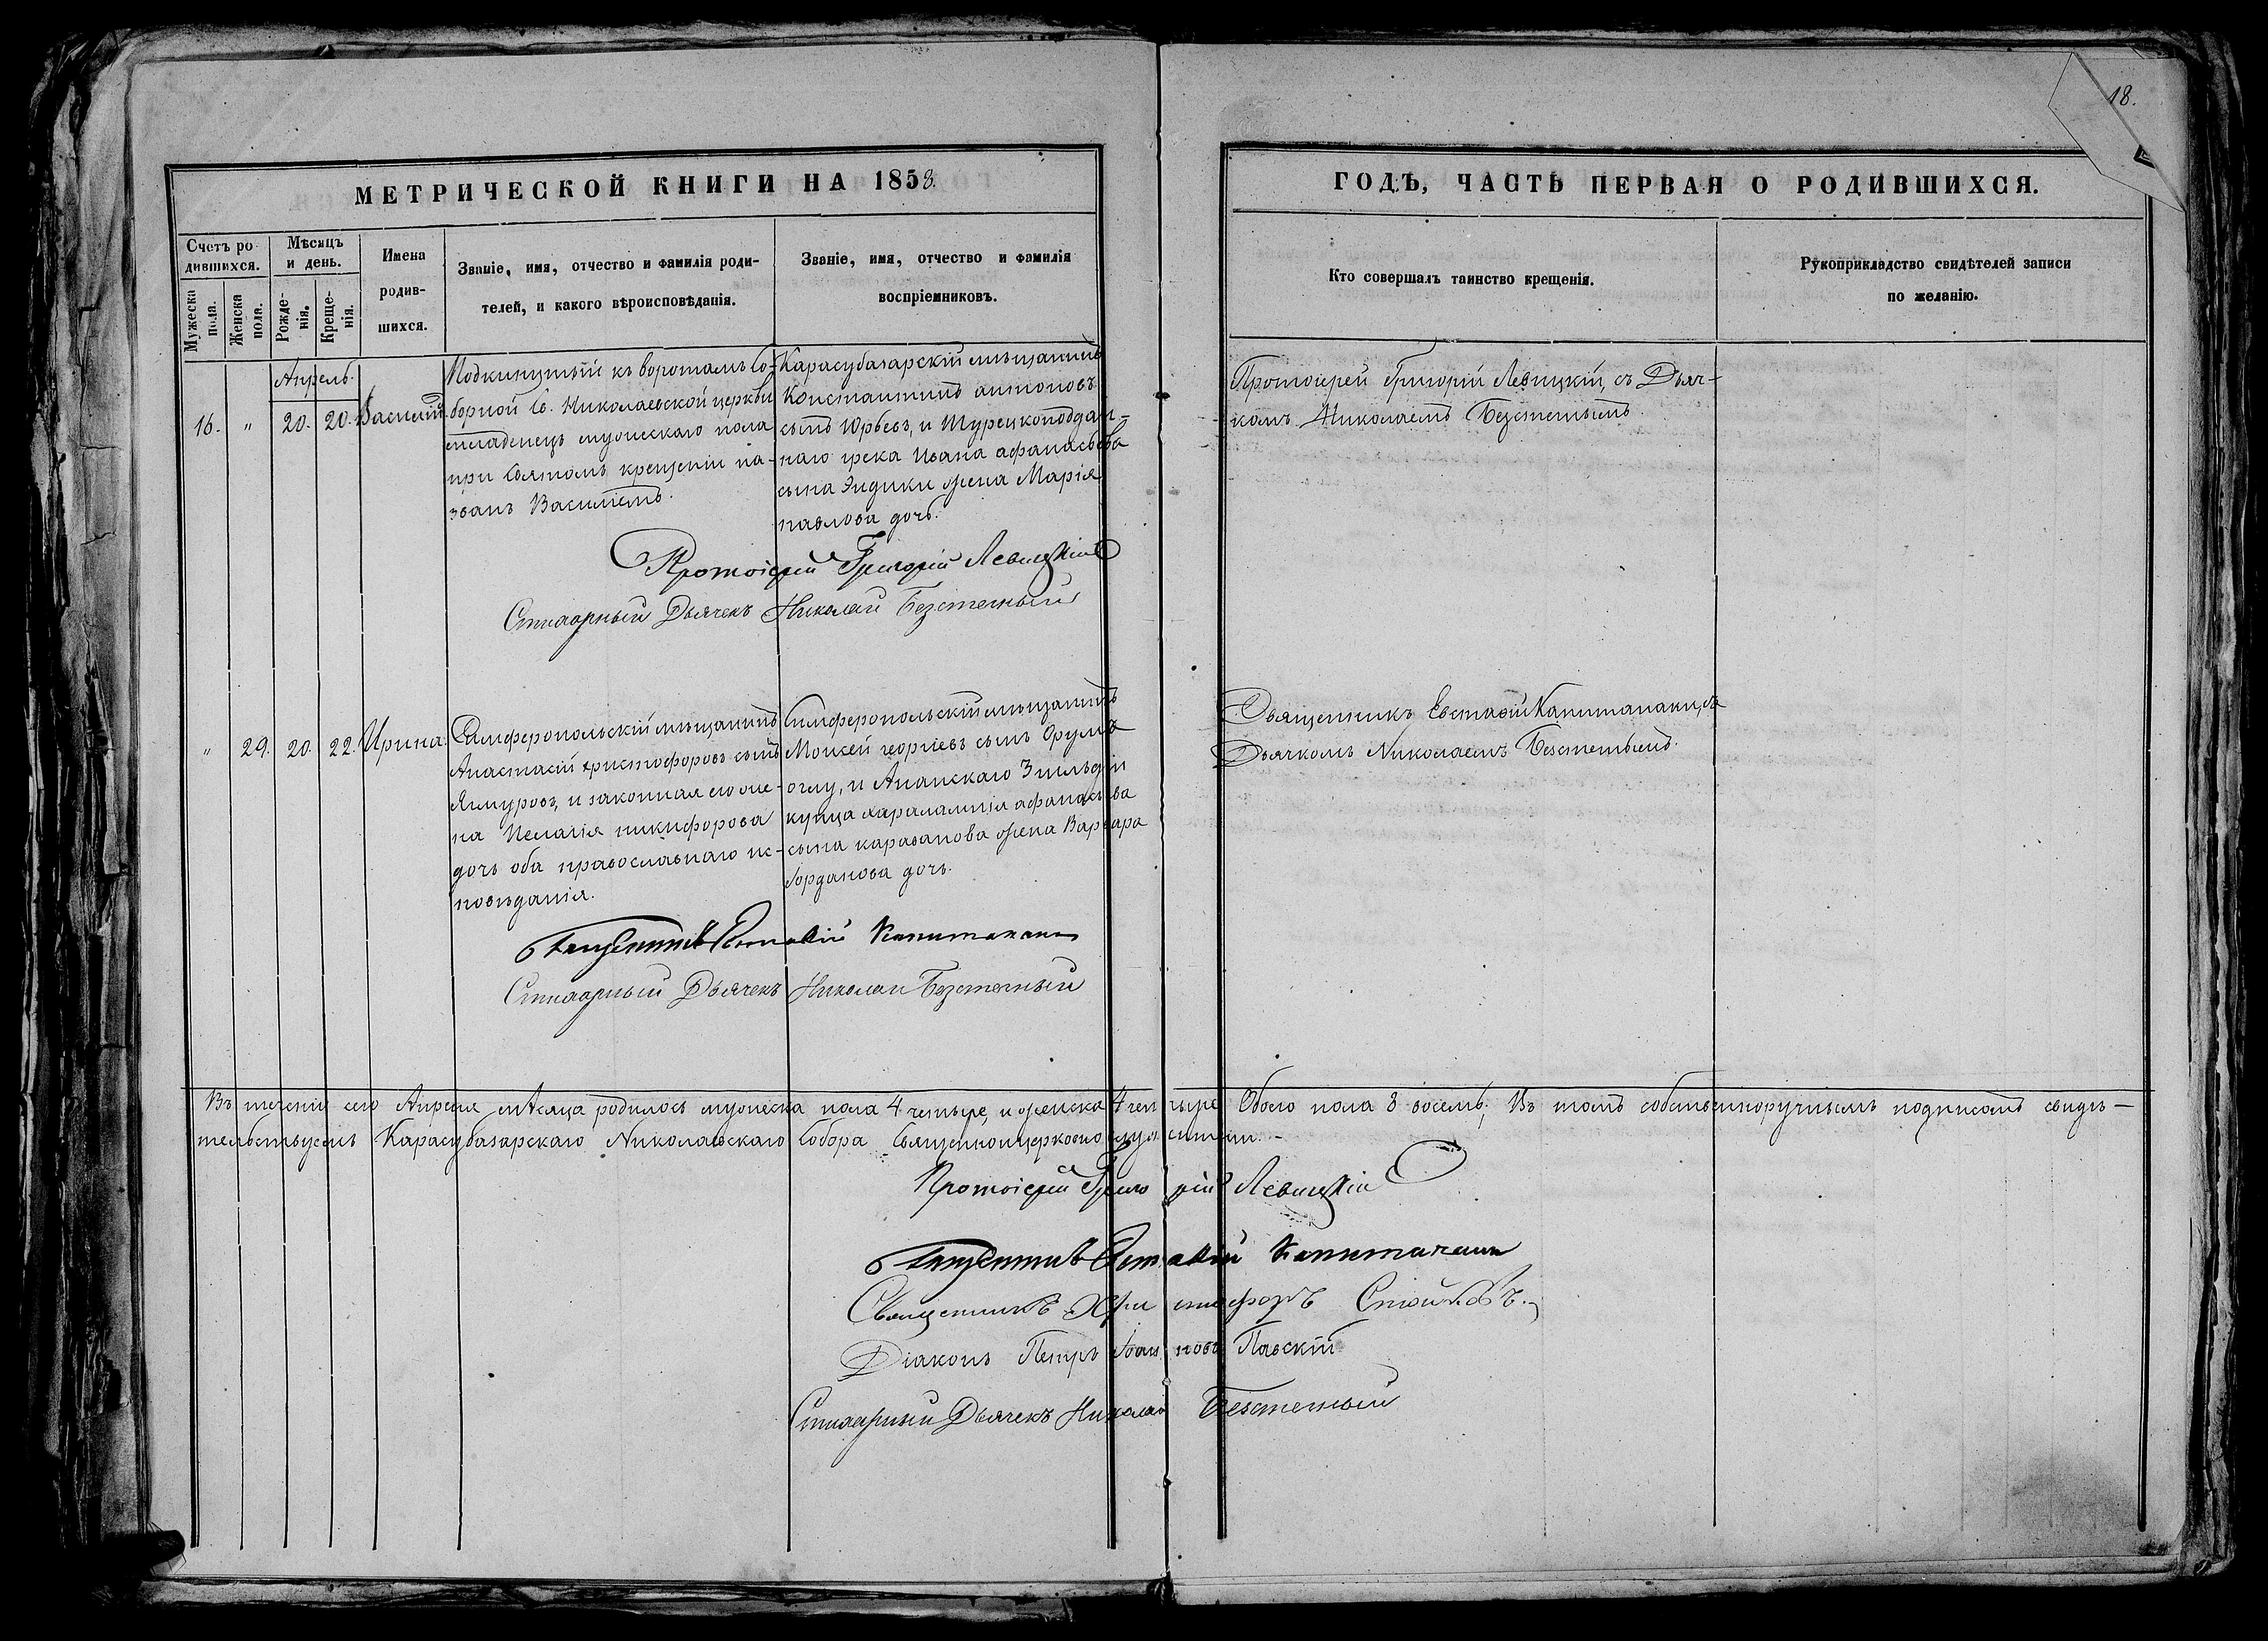 18.
МЕТРИЧЕСКОЙ КНИГИ НА 1858.
ГОДЪ, ЧАСТЬ ПЕРВАЯ О РОДИВШИХСЯ.
Счетъ ро-
дившихся.
Мужеска
пола.
Женска
пола.
Мѣсяцъ
и день.
Рожде-
нія.
Креще-
нія.
Имена
родив-
шихся.
Званіе, имя, отчество и фамилія роди-
телей, и какого вѣроисповѣданія.
Званіе, имя, отчество и фамилія
воспріемниковъ.
Кто совершалъ таинство крещенія.
Рукоприкладство свидѣтелей записи
по желанію.
Апрель.
16. " 20. 20. Василій
Подкинутый къ воротамъ Со-
борной Св. Николаевской церкви
младенецъ мужескаго пола
при Святомъ крещеніи на-
званъ Василіемъ.
Карасубазарскій мѣщанинъ
Константинъ антоновъ
сынъ Юрьевъ, и Турецкоподдан-
наго грека Ивана афанасьева
сына жена Марія
павлова дочь.
Протоіерей Григорій Левицкій, съ Дьяч-
комъ Николаемъ Безстетымъ.
Протоіерей Григорій Левицкій
Стихарный Дьячекъ Николай Безстетный
" 29. 20. 22. Ирина.
Симферопольскій мѣщанинъ
Анастасій христофоровъ сынъ
Ягмуровъ, и законная его же-
на Пелагія никифорова
дочь оба православнаго ис-
повѣданія.
Симферопольскій мѣщанинъ
Моисей георгіевъ сынъ
оглу, и Анапскаго 3 гильдіи
купца харалампія афанасьева
сына караванова жена Варвара
Іорданова дочь.
Священникъ Евстафій Капитанаки, съ
Дьячкомъ Николаемъ Безстетымъ.
Священникъ Евстафій Капитанаки
Стихарный Дьячекъ Николай Безстетный
Въ теченіи сего Апреля мѣсяца родилось мужеска пола 4 четыре, и женска 4 четыре Обоего пола 8 восемь; Въ томъ собственноручнымъ подписомъ свидѣ-
тельствуемъ Карасубазарскаго Николаевскаго Собора Священноцерковнослужители.
Протоіерей Григорій Левицкій
Священникъ Евстафій Капитанаки
Священникъ Христофоръ Стойковъ.
Діаконъ Петръ Іоанновъ Павскій
Стихарный Дьячекъ Николай Безстетный